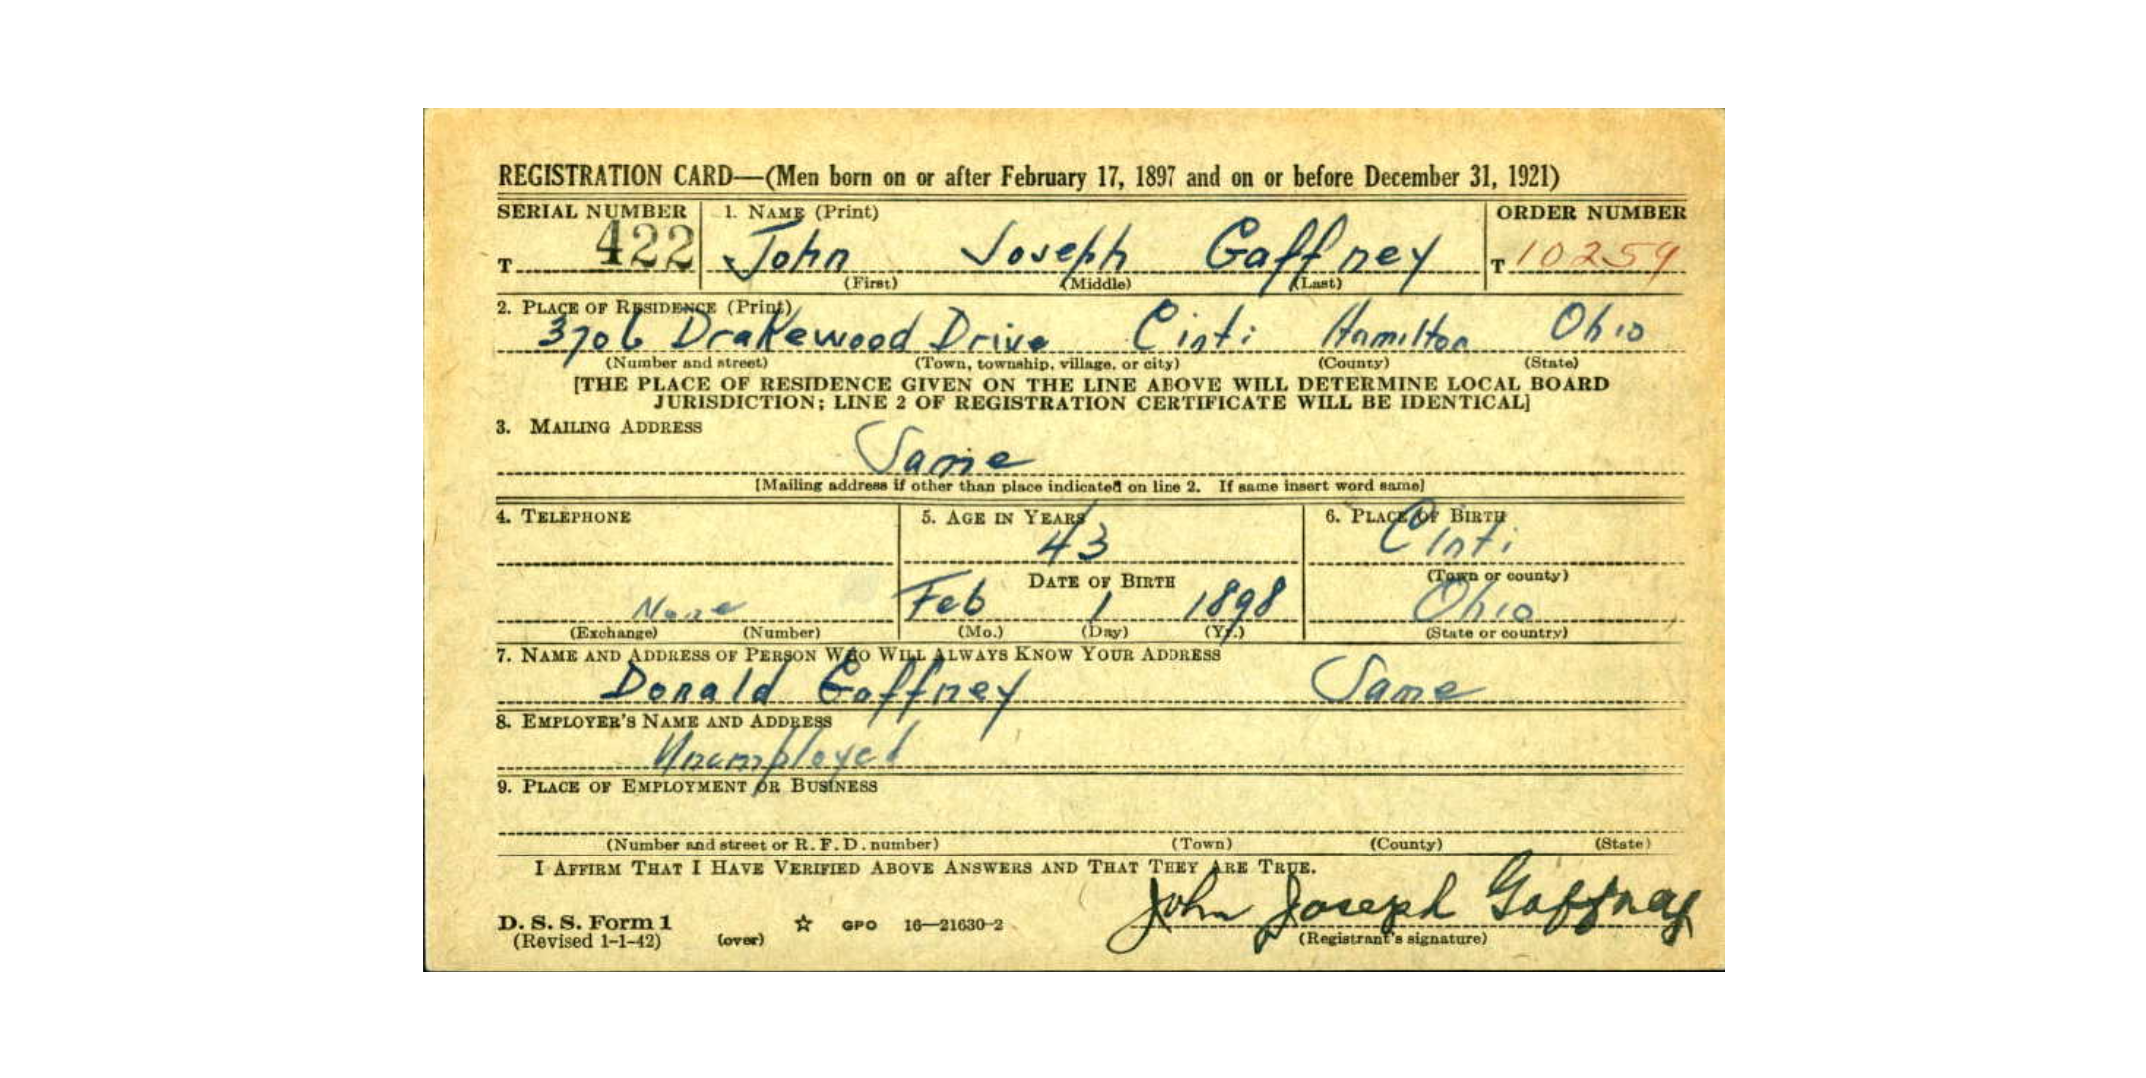 REGISTRATION CARD—(Men born on or after February 17, 1897 and on or before December 31, 1921)
SERIAL NUMBER 1. NAME (Print) ORDER NUMBER
T 422 John Joseph Gaffney T 10259
(First) (Middle) (Last)
2. PLACE OF RESIDENCE (Print)
3706 Drakewood Drive Cinti Hamilton Ohio
(Number and street) (Town, township, village, or city) (County) (State)
[THE PLACE OF RESIDENCE GIVEN ON THE LINE ABOVE WILL DETERMINE LOCAL BOARD
JURISDICTION; LINE 2 OF REGISTRATION CERTIFICATE WILL BE IDENTICAL]
3. MAILING ADDRESS
Same
[Mailing address if other than place indicated on line 2. If same insert word same]
4. TELEPHONE 5. AGE IN YEARS 6. PLACE OF BIRTH
43 Cinti
DATE OF BIRTH (Town or county)
None Feb 1 1898 Ohio
(Exchange) (Number) (Mo.) (Day) (Yr.) (State or country)
7. NAME AND ADDRESS OF PERSON WHO WILL ALWAYS KNOW YOUR ADDRESS
Donald Gaffney Same
8. EMPLOYER'S NAME AND ADDRESS
Unemployed
9. PLACE OF EMPLOYMENT OR BUSINESS
(Number and street or R. F. D. number) (Town) (County) (State)
I AFFIRM THAT I HAVE VERIFIED ABOVE ANSWERS AND THAT THEY ARE TRUE.
John Joseph Gaffney
D. S. S. Form 1 ☆ GPO 16—21630-2
(Revised 1-1-42) (over) (Registrant's signature)